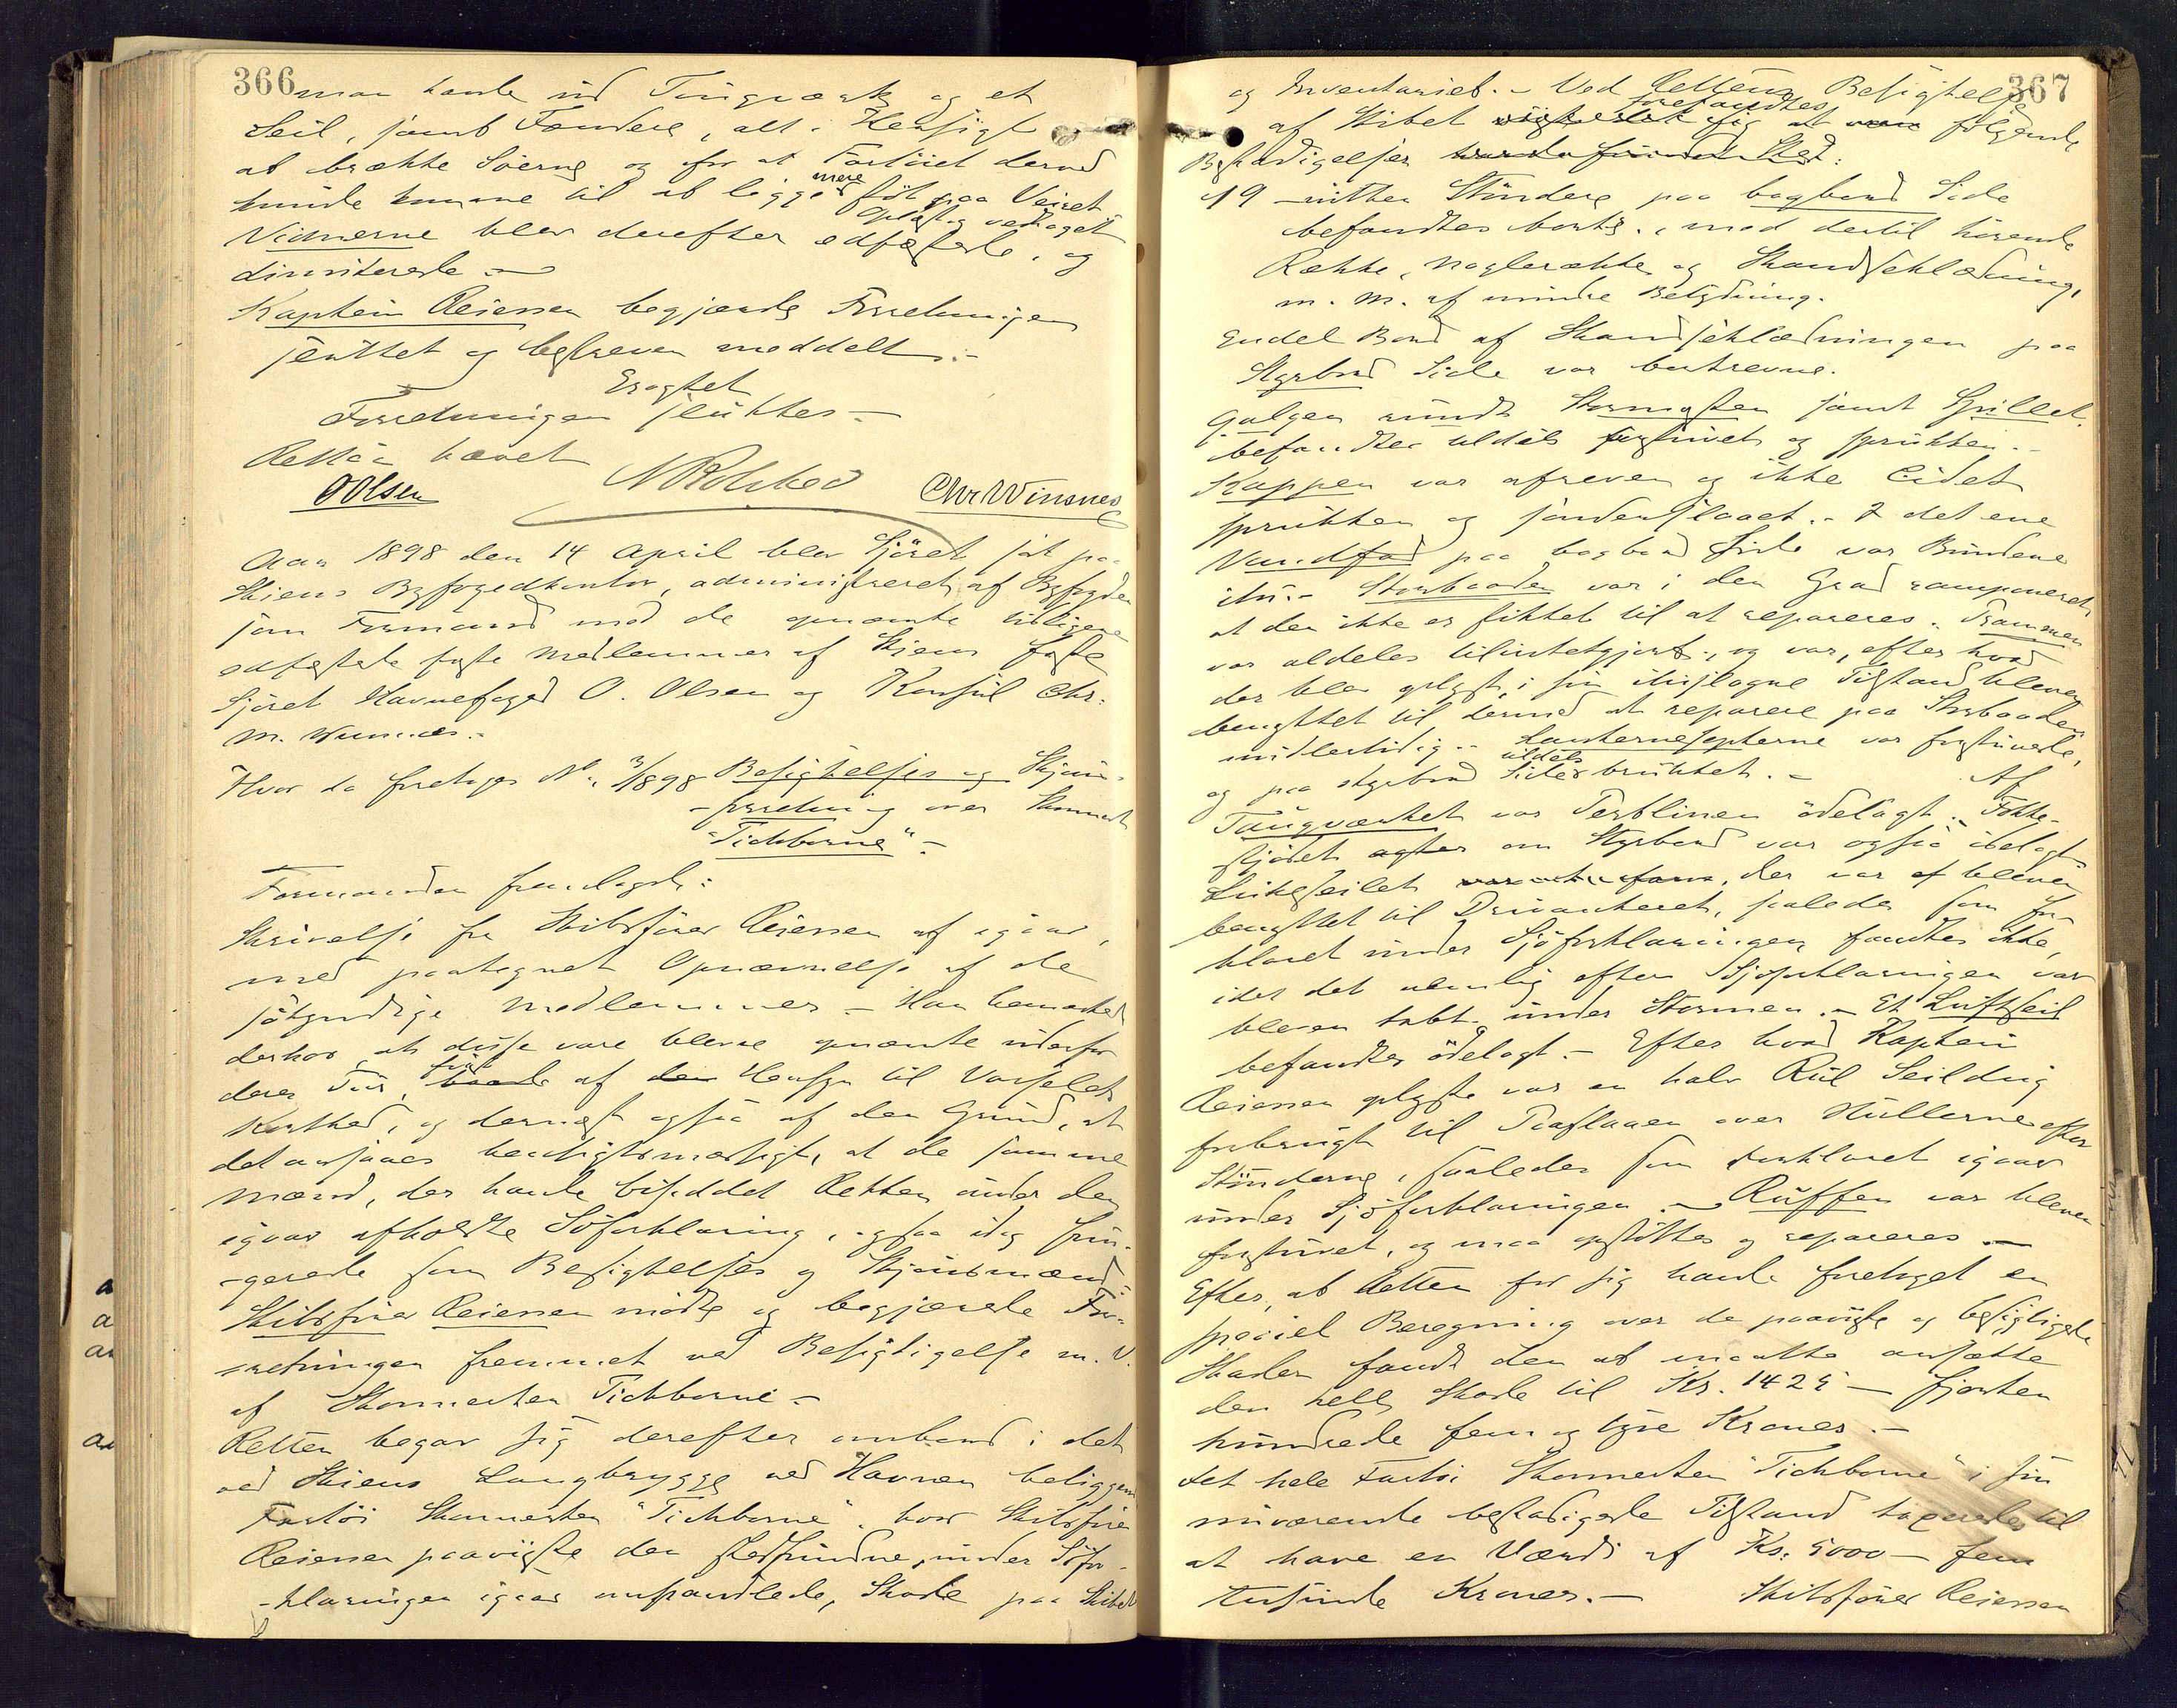 366
man havde ud Taugværk og et
Seil, samt Fændere, alt i Hensigt
at brække Søerne og for at Fartøiet derved
kunde komme til at ligge mere føt paa Veiret
oplæst og vedtaget
Vidnerne blev derefter edfæstede, og
dimiterede. —
Kaptein Reiersen begjærede Forretningen
sluttet og beskreven meddelt. -
Eragtet
Forretningen sluttes. —
Retten hævet
O Olsen
Chr Winsnes
Aar 1898 den 14 April blev Sjöret sat paa
Skiens Byfogedkontor, administreret af Byfogden
som Formand med de opnævnte tidligere
edfæstede faste Medlemmer af Skiens faste
Sjöret Havnefoged O. Olsen og Konsul Chr.
M. Winsnes.-
Hvor da foretoges No. 3/1898 Besigtelses og Skjøns-
-forretning over Skonnert
"Tichborne" -
Formanden fremlagde:
Skrivelse fra Skibsfører Reiersen af igaar,
med paategnet Opnævnelse af de
søkyndige Medlemmer. - Han bemærked
derhos at disse vare blevne opnævnte udenfor
deres Tur, først af Hensyn til Varselets
Korthed, og dernæst ogsaa af den Grund, at
det ansaaes hensigtsmæssigt, at de samme
Mænd, der havde bisiddet Retten under den
igaar afholdte Søforklaring, ogsaa idag fun-
-gerede som Besigtelses og Skjønsmænd.
Skibsfører Reiersen mødte og begjærede For-
retningen fremmet ved Besigtigelse m. V.
af Skonnerten Tichborne -
Retten begav sig derefter ombord i det
ved Skiens Langbrygge ved Havnen beliggende
Fartöi Skonnerten "Tichborne", hvor Skibsfører
Reiersen paaviste den stedfundne, under Søfor-
-klaringen igaar omhandlede, Skade paa Skibet
367
og Inventariet. - Ved Rettens Besigtelse
af Skibet forefandtes følgende
Beskadigelser:
19 - nitten Støndere paa bagbord Side
befandtes borte, med dertil hörende
Række, Naglerække og Skandseklædning,
m. M. af mindre Betydning.
Endel Bord af Skandseklædningen paa
Styrbord Side var bortrevne.
Galgen rundt Stormasten samt Spillet
befandtes tildels forskrivet og sprukken. -
Kappen var afreven og ikke lidet
sprukken og sønderslaaet. - I det ene
Vandfad paa bagbord Side var Bundene
itu. - Storbaaden var i den Grad ramponeret
at den ikke er skikket til at repareres. Prammen
var aldeles tilintetgjort, og var, efter hvad
der blev oplyst, i sin ituslagne Tilstand bleven
benyttet til dermed at reparere paa Storbaaden
midlertidig. - Lanternestøtterne var forskruede,
og paa styrbord Side tildels brukket. - Af
Taugværket var Perblinen ödelagt. Fokke-
skjödet agter om Styrbord var ogsaa ödelagt
Linkseilet, der var bleven
benyttet til Drivankeret, saaledes som for-
klaret under Sjöforklaringen fandtes ikke,
idet det nemlig efter Sjöforklaringen var
bleven tabt under Stormen. - Et Luftseil
befandtes ödelagt. - Efter hvad Kaptein
Reiersen oplyste var en halv Rul Seildug
forbrugt til Paaslaaen over Hullerne efter
Stønderne, saaledes som forklaret igaar
under Sjöforklaringen. - Ruffen var bleven
forskruet, og maa opstöttes og repareres. -
Efter, at Retten for sig havde foretaget en
speciel Beregning over de paaviste og besigtigede
Skader fandt den at maatte ansætte
den hele Skade til Kr. 1425 - fjorten
hundrede fem og tyve Kroner. -
Det hele Fartöi Skonnerten "Tichborne" i sin
nuværende beskadigede Tilstand taxeredes til
at have en Værdi af Kr. 5000 - fem
tusinde Kroner. - Skibsfører Reiersen